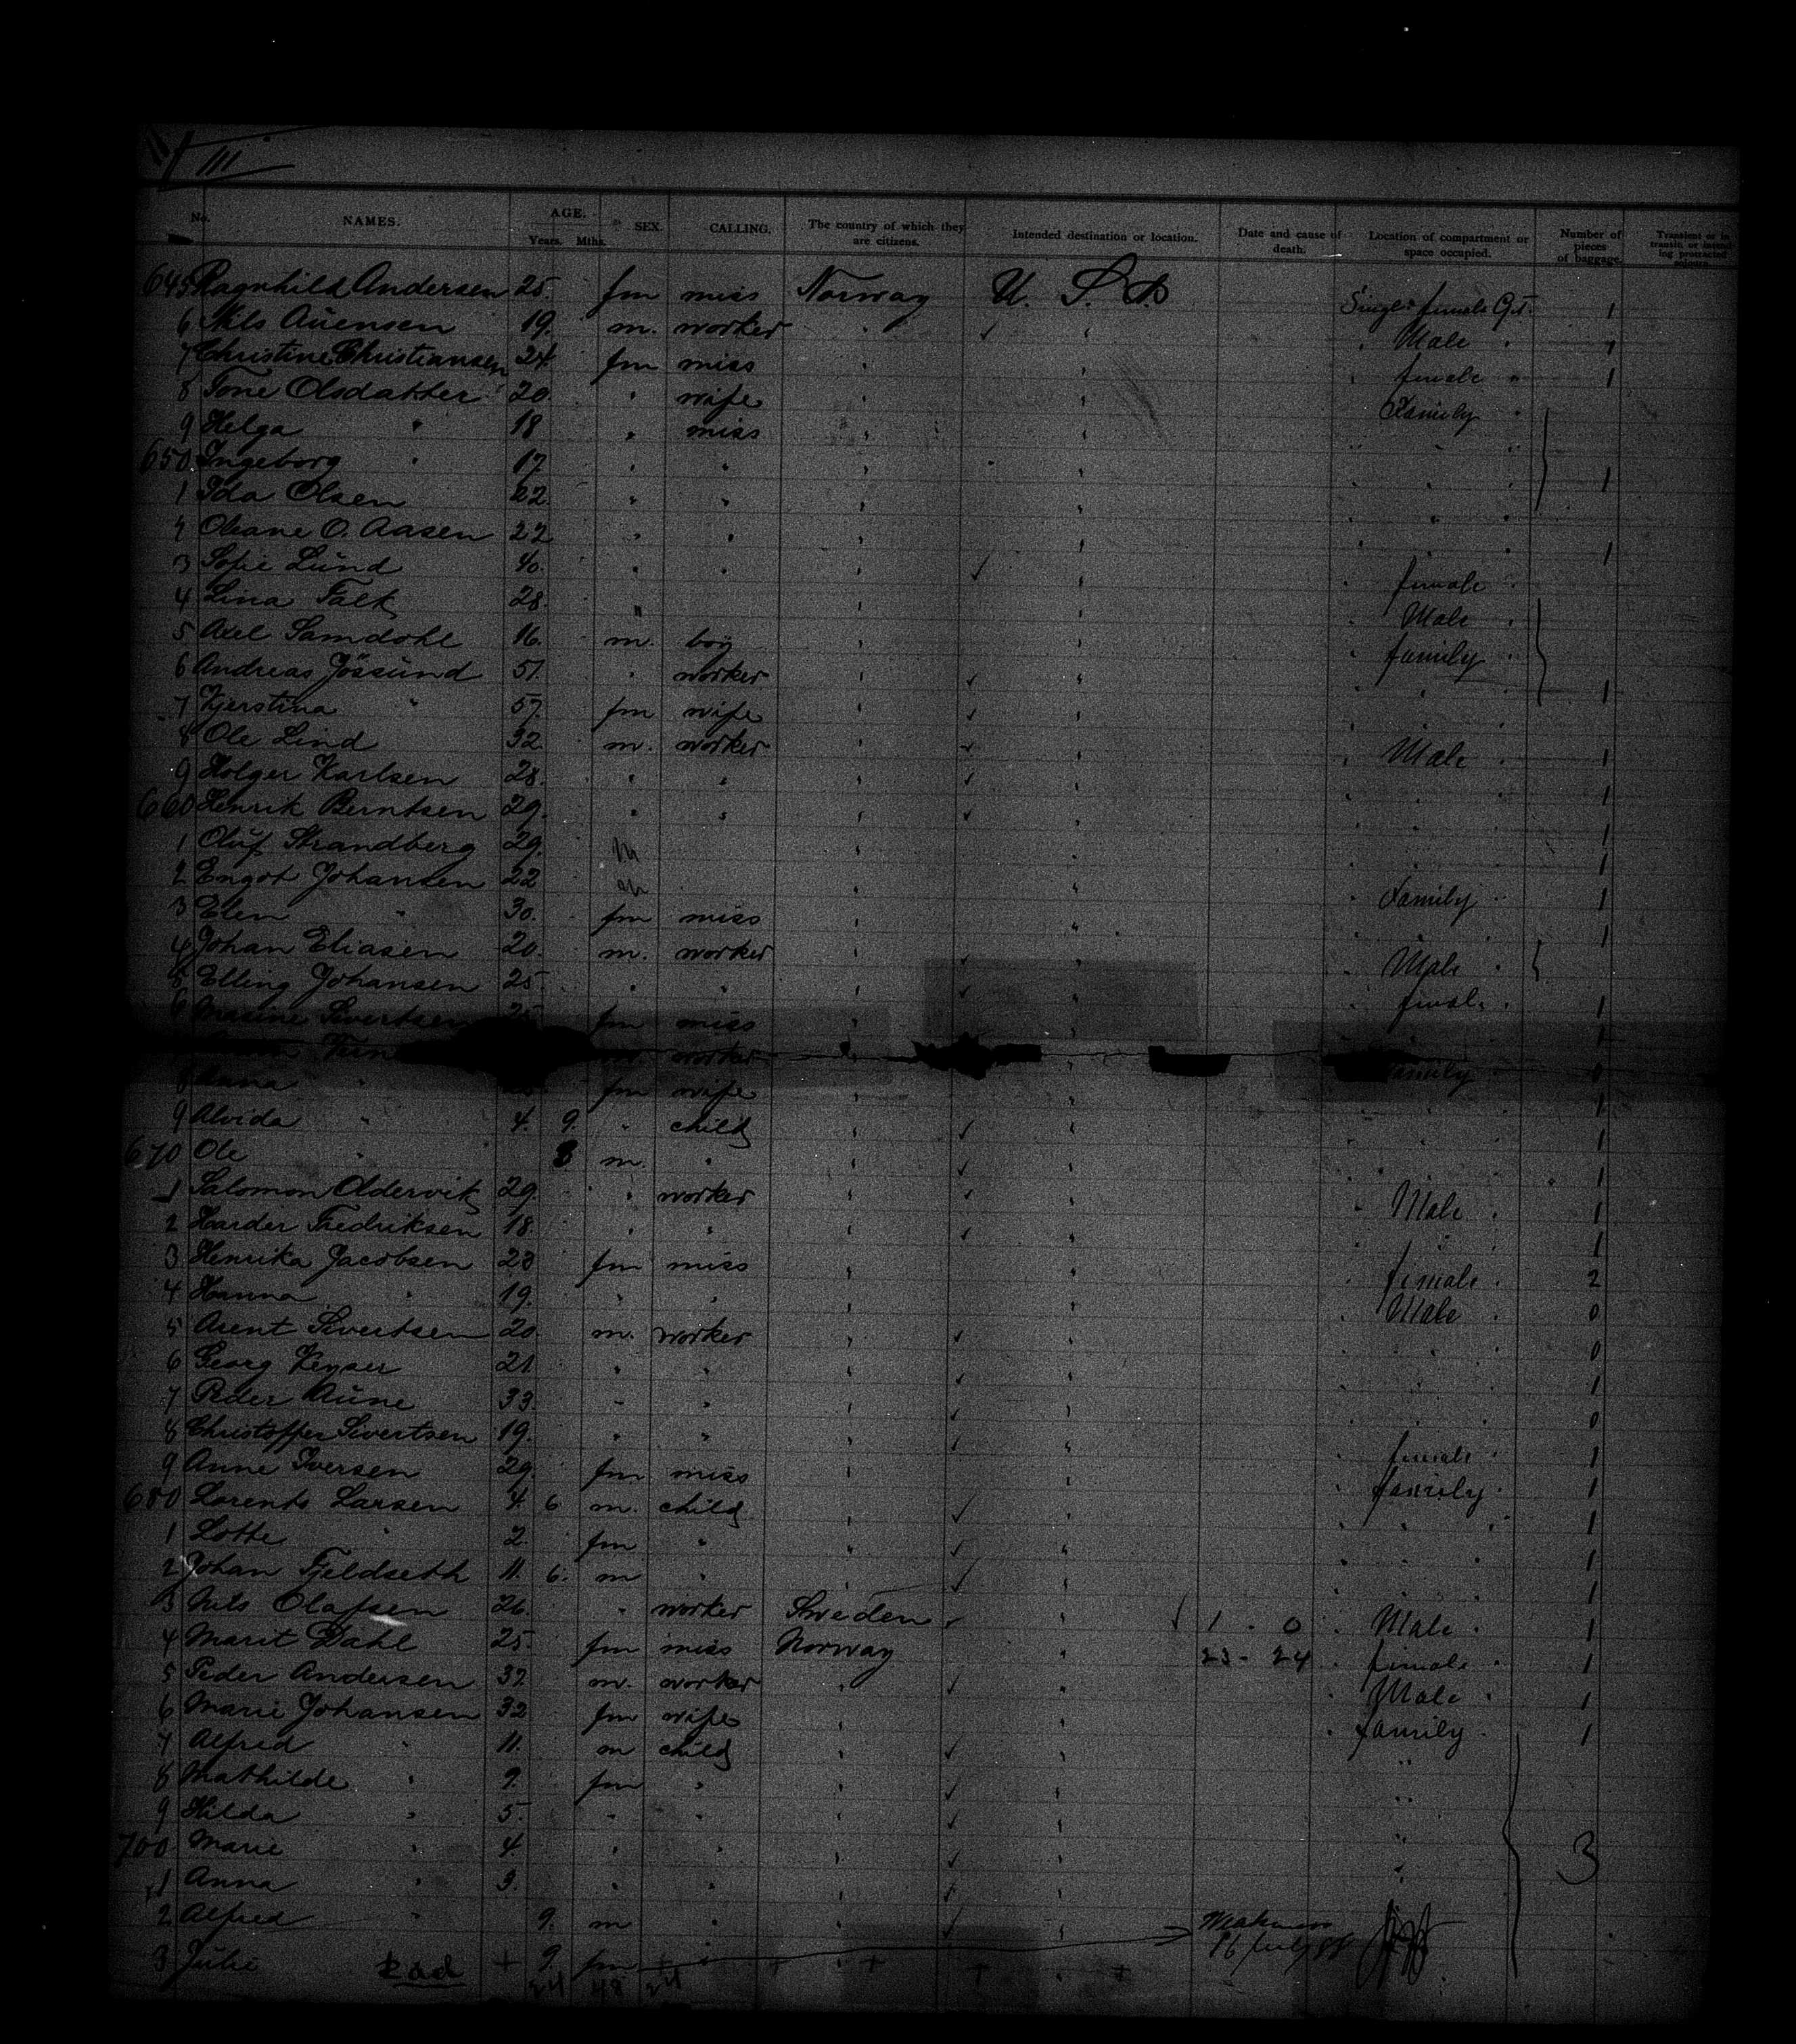 111
No. NAMES. AGE. Years. Mths. SEX. CALLING. The country of which they are citizens. Intended destination or location. Date and cause of death. Location of compartment or space occupied. Number of pieces of baggage. Transient or in transit, or intending protracted sojourn.
645 Ragnhild Andersen 25. fm miss Norway U. S. A Single female Qt. 1
6 Nils Auensen 19. m. worker " " Male " 1
7 Christine Christiansen 24 fm miss " " " female " 1
8 Tone Olsdatter 20. " wife " " Family "
9 Helga " 18 " miss " "
650 Ingeborg " 17 " " " " 1
1 Ida Olsen 22 " " " "
2 Oleane O. Aasen 22 " " " " 1
3 Sofie Lünd 40. " " " " female "
4 Lina Falk 28. " " " Male "
5 Axel Samdohl 16. m. boy " " family "
6 Andreas Jössund 51. " worker " " 1
7 Kjerstina " 57. fm wife " "
8 Ole Lind 32 m. worker " " Male " 1
9 Holger Karlsen 28. " " " " 1
660 Henrik Berntsen 29. " " " " 1
1 Oluf Strandberg 29. m " " 1
2 Engot Johansen 22 m " " Family " 1
3 Elen " 30. fm miss " " 1
4 Johan Eliasen 20. m. worker " " Male "
5 Elling Johansen 25 " " " " female 1
6 Masine Sivertsen 25 fm miss " " 1
worker " " family 0
8 Anna " fm wife " " 1
9 Alvida " 4. 9. " child " " 1
670 Ole " 8 m. " " " 1
1 Salomon Oldervik 29. " worker " " Male " 1
2 Harder Fredriksen 18. " " " " 1
3 Henrika Jacobsen 23 fm miss " " female " 2
4 Hanna " 19. " " " " Male 0
5 Arent Sivertsen 20. m. worker " " 0
6 Georg Keyser 21 " " " " 1
7 Peder Aüne 33. " " " " 0
8 Christoffer Sivertsen 19. " " " " female " 1
9 Anne Iversen 29. fm miss " " family " 1
680 Lorents Larsen 4. 6 m. child " " 1
1 Lotte " 2. fm " " " 1
2 Johan Fjeldseth 11. 6. m " " " 1
3 Nils Olafsen 26. " worker Sweden " 1 . 0 Male " 1
4 Marit Dahl 25. fm miss Norway " 23 - 24 female " 1
5 Peder Andersen 37. m. worker " " Male " 1
6 Marie Johansen 32 fm wife " " family " 1
7 Alfred " 11. m child " " "
8 Mathilde " 9. fm " " " "
9 Hilda " 5. " " " "
700 Marie " 4. " " " " " 3
1 Anna " 3. " " " "
2 Alfred " 9. m " " "
3 Julie dead + 9. fm + " + + + + Weakness 16 July 88
24 48 24